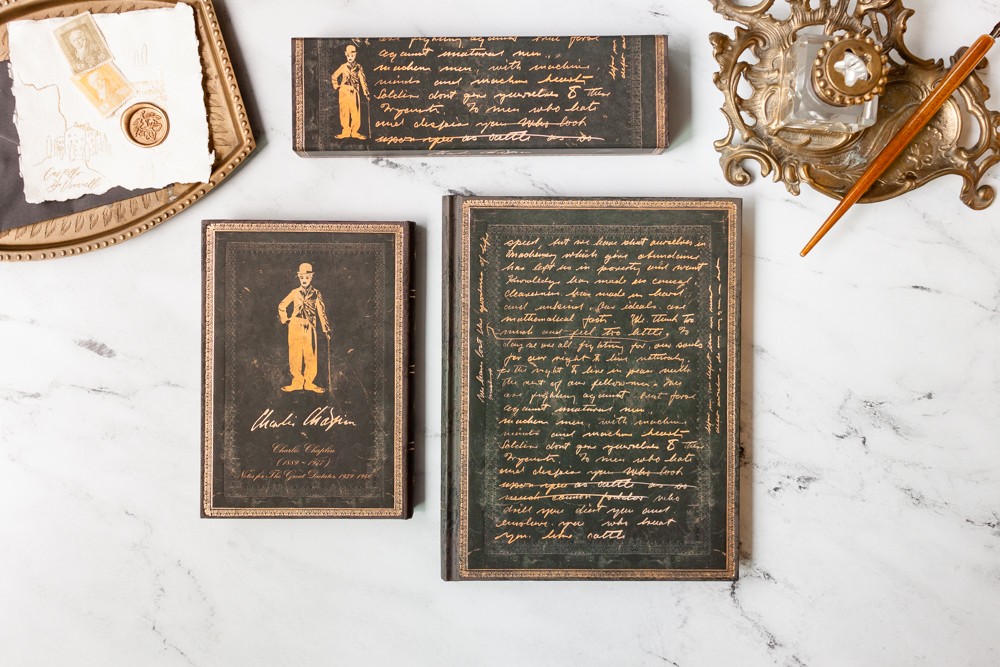 are fighting against
against unatural men.
machine men, with machine
minds and machine hearts
Soldiers dont give yourselves to these
Tryants. To men who hate
and despise you who look
upon you as cattle
Charlie Chaplin
Charlie Chaplin
(1889 ~ 1977)
Notes for The Great Dictator, 1939-1940
speed, but we have shut ourselves in
Machinery which gives abundance
has left us in poverty and want
Knowledge has made us
cleverness has made us hard
and unkind. Our ideals are
mathematical facts. We think too
much and feel too little, So
long as we all fighting for our souls
for our right to live naturally,
for the right to live in peace with
the rest of our fellowmen. We
are fighting against hate force
against unatural men.
machine men, with machine
minds and machine hearts
Soldiers dont give yourselves to these
Tryants. To men who hate
and despise you who look
upon you as cattle or as
canon fodder who
drill you diet you and
enslave you who treat
you like cattle
We have lost the